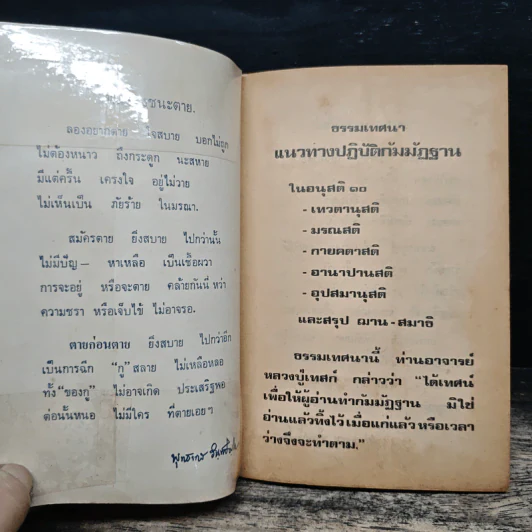 ชนะตาย.
ลองอยากตาย ใจสบาย บอกไม่ถูก
ไม่ต้องหนาว ถึงกระดูก นะสหาย
มีแต่ครึ้น เครงใจ อยู่ไม่วาย
ไม่เห็นเป็น ภัยร้าย ในมรณา.
สมัครตาย ยิ่งสบาย ไปกว่านั้น
ไม่มีปัญ— หาเหลือ เป็นเชื้อผวา
การจะอยู่ หรือจะตาย คล้ายกันนี่ หว่า
ความชรา หรือเจ็บไข้ ไม่อาจรอ.
ตายก่อนตาย ยิ่งสบาย ไปกว่าอีก
เป็นการฉีก "กู" สลาย ไม่เหลือหลอ
ทั้ง "ของกู" ไม่อาจเกิด ประเสริฐพอ
ต่อนั้นหนอ ไม่มีใคร ที่ตายเอย ฯ
พุทธทาส อินทปัญโญ
ธรรมเทศนา
แนวทางปฏิบัติกัมมัฏฐาน
ในอนุสติ ๑๐
- เทวตานุสติ
- มรณสติ
- กายคตาสติ
- อานาปานสติ
- อุปสมานุสติ
และสรุป ฌาน - สมาธิ
ธรรมเทศนานี้ ท่านอาจารย์
หลวงปู่เทสก์ กล่าวว่า "ได้เทศน์
เพื่อให้ผู้อ่านทำกัมมัฏฐาน มิใช่
อ่านแล้วทิ้งไว้ เมื่อแก่แล้ว หรือเวลา
ว่างจึงจะทำตาม."